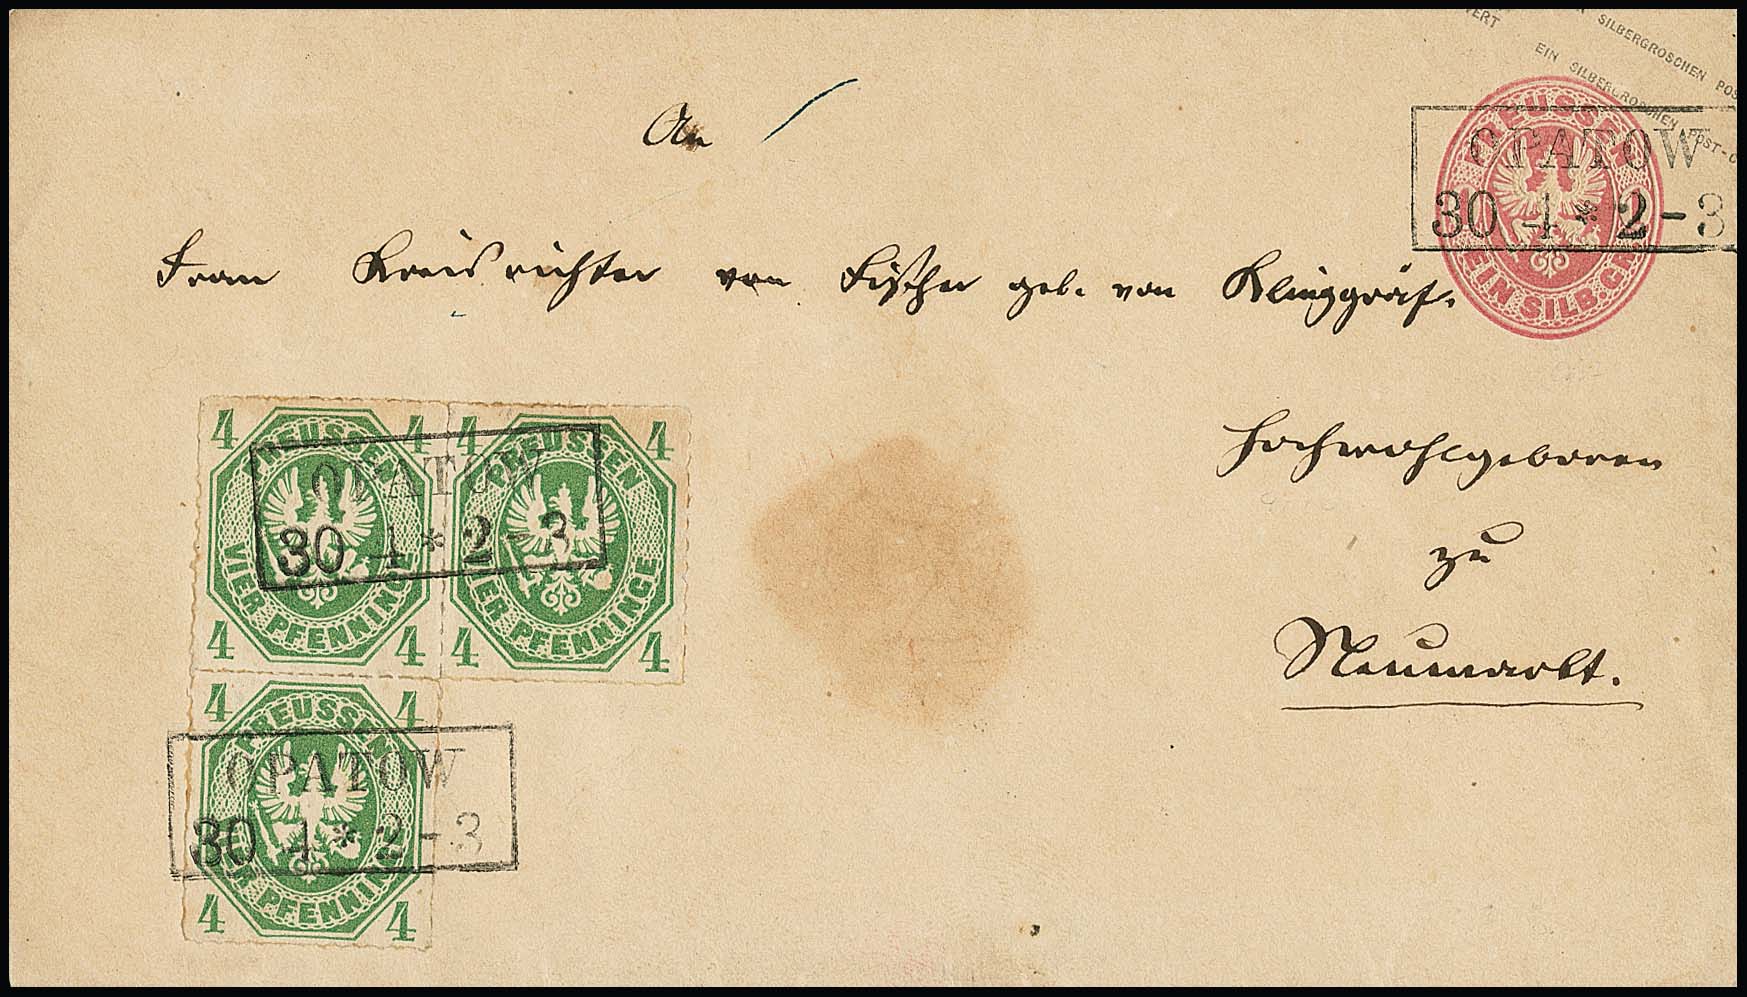 SILBERGROSCHEN POS
VERT
EIN SILBERGROSCHEN POST-C
PREUSSEN
EIN SILB. GR.
OPATOW
30 4 * 2-3
An
Frau Kreisrichter von Fischer geb. von Klinggräf.
Hochwohlgeboren
zu
Neumarkt.
4 4 4 4
PREUSSEN PREUSSEN
OPATOW
30 4 * 2-3
VIER PFENNINGE VIER PFENNINGE
4 4 4 4
4 4
PREUSSEN
OPATOW
30 4 * 2-3
VIER PFENNINGE
4 4